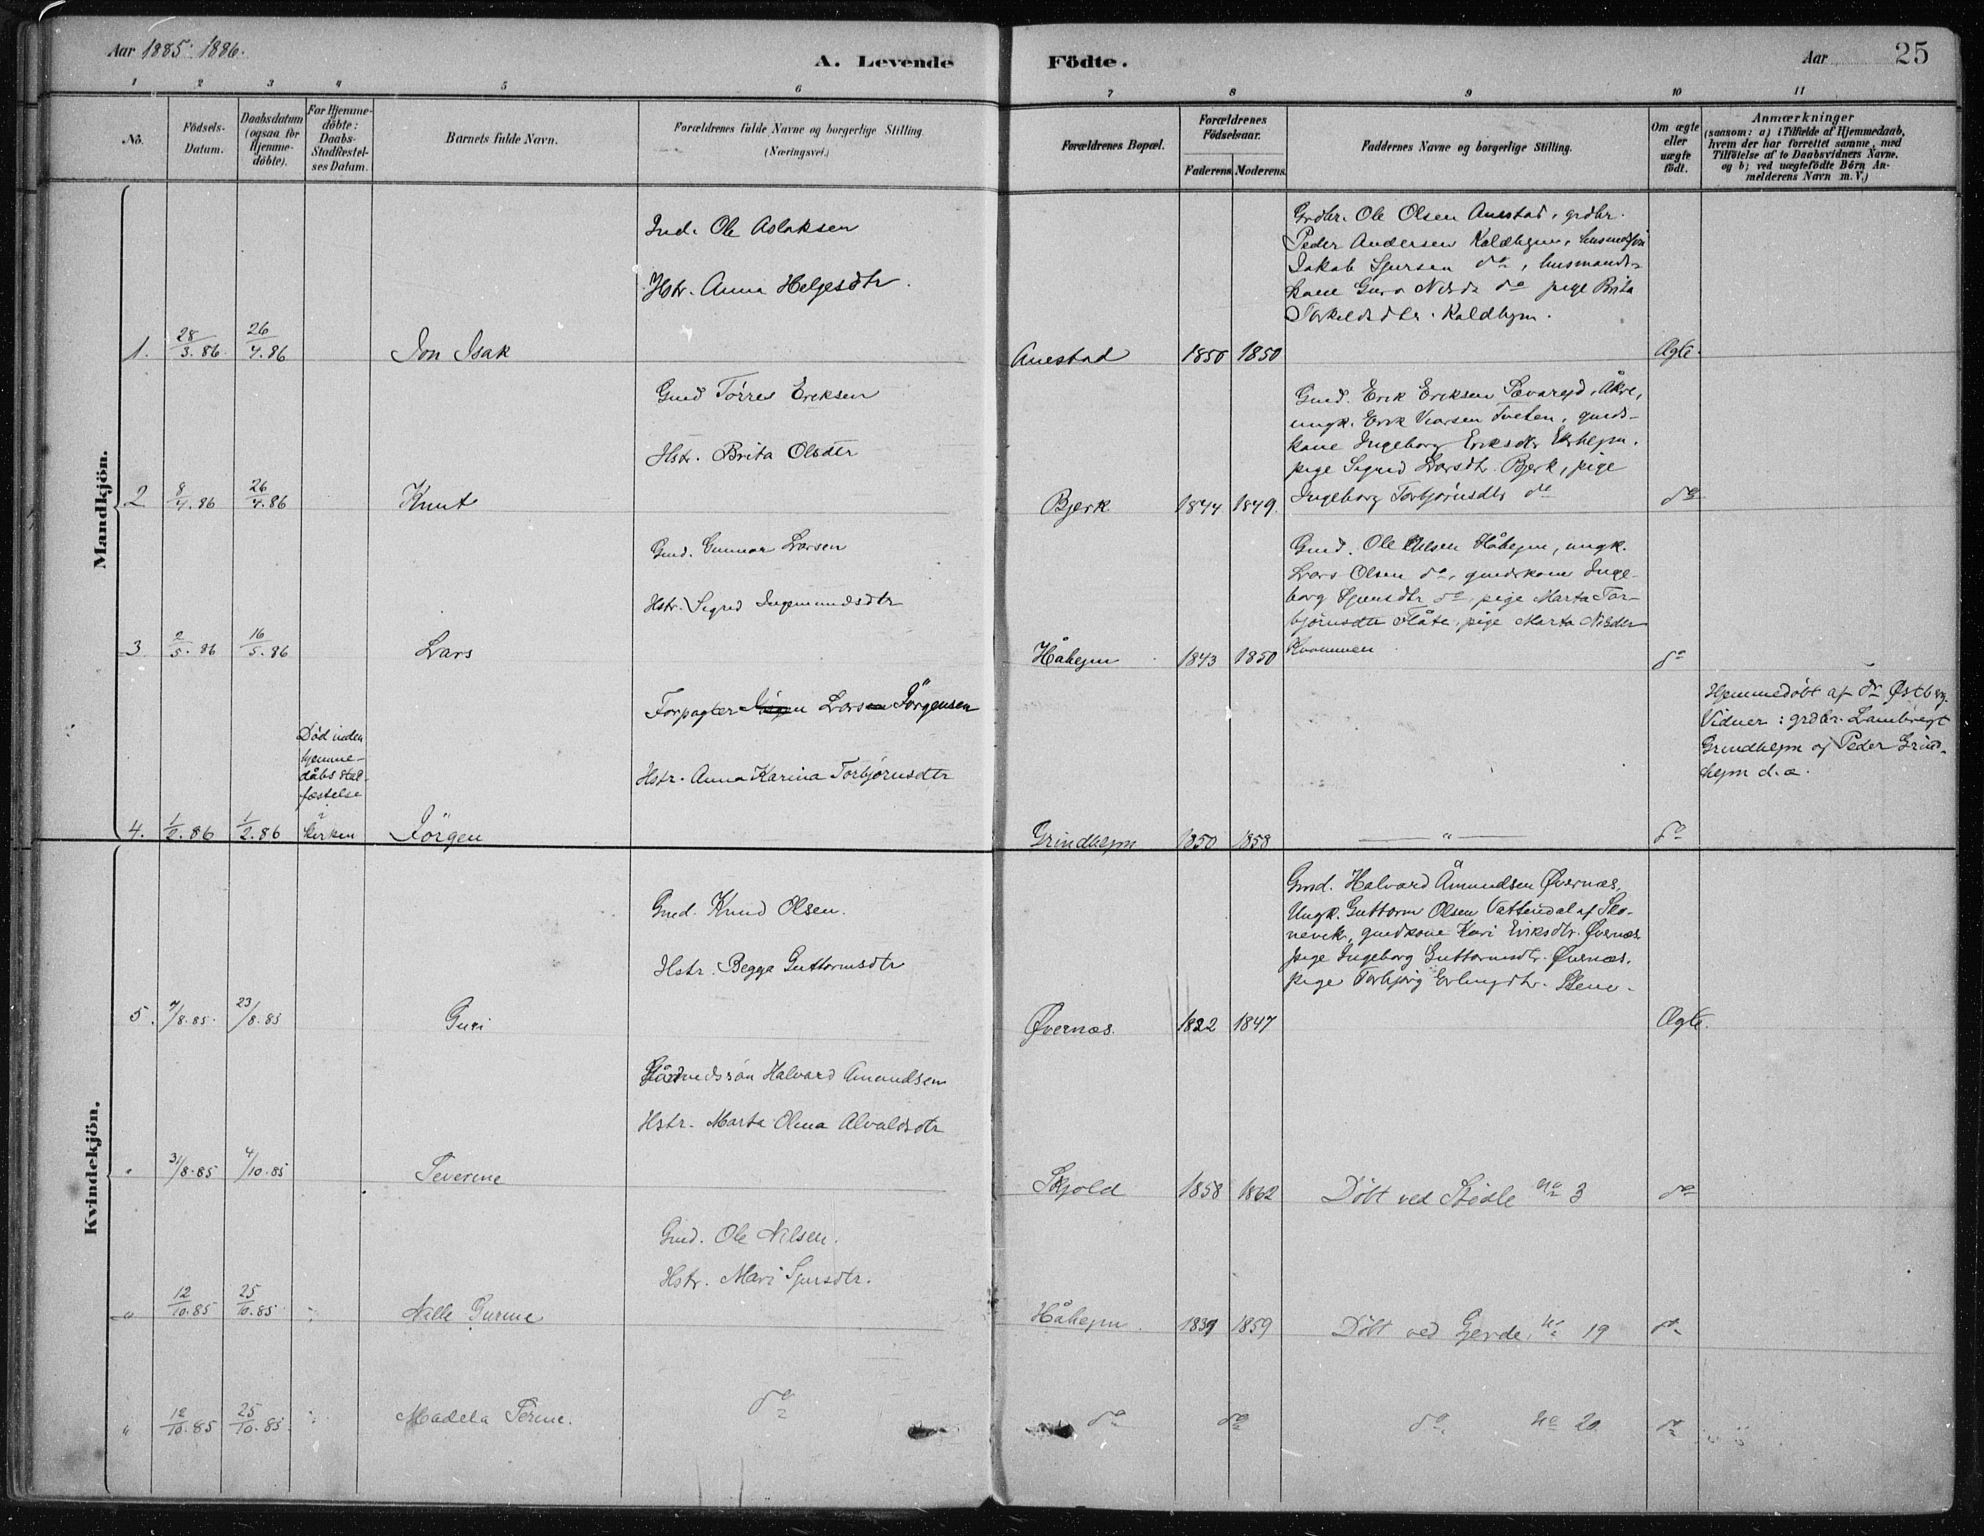 Aar 1885. 1886.
A. Levende Födte.
Aar 25
1 2 3 4 5 6 7 8 9 10 11
No.
Födsels-
Datum.
Daabsdatum
(ogsaa for
Hjemme-
döbte).
For Hjemme-
döbte:
Daabs-
Stadfæstel-
ses Datum.
Barnets fulde Navn.
Forældrenes fulde Navne og borgerlige Stilling.
(Næringsvei.)
Forældrenes Bopæl.
Forældrenes
Födselsaar.
Faderens. Moderens.
Faddernes Navne og borgerlige Stilling.
Om ægte
eller
uægte
födt.
Anmærkninger
(saasom: a) i Tilfælde af Hjemmedaab,
hvem der har forrettet samme, med
Tilföielse af to Daabsvidners Navne,
og b) ved uægtefödte Börn An-
melderens Navn m. V.)
Mandkjön.
Ind. Ole Aslaksen
Hstr. Anna Helgesdtr.
1. 28/3.86. 26/4.86 Jon Isak
Anestad 1850 1850
Grdbr. Ole Olsen Anestad, grdbr.
Peder Andersen Kaldhejm, husmds
Jakob Sjursen do, husmands-
kone Guro Nilsd. do pige Brita
Torkeldsdtr. Kaldhejm.
Ægte.
Gmd Tørres Eriksen
Hstr. Brita Olsdtr
2 8/4.86 26/4.86 Knut
Bjerk 1844 1849.
Gmd. Erik Eriksen Sævareid, Åkre,
ungk. Erik Tveten, gmds-
kone Ingeborg Eriksdtr
pige Sigrid Larsdtr. Bjerk, pige
Ingeborg Torbjørnsdtr do
do
Gmd. Gunnar Larsen
Hstr. Sigrid Ingemundsdtr
3 2/5.86 16/5.86 Lars
Håhejm. 1843 1850
Gmd. Ole Olsen Håhejm, ungk.
Lars Olsen do, gmdskone Inge-
borg Sjursdtr do, pige Marta Tor-
bjørnsdtr Flåte, pige Marta Nilsdtr
Kvammen.
do
Forpagter Lars Jörgensen
Hstr. Anna Karina Torbjørnsdtr
Død inden
hjemme-
dåbs stad-
fæstelse
i
kirken
4. 1/2.86 1/2.86 Jörgen
Grindhejm 1850 1858 — " — do
Hjemmedøbt af dr Østberg.
Vidner: grdbr. Lambregt
Grindhejm og Peder Grind-
hejm d. a.
Kvindekjön.
Gmd. Knud Olsen.
Hstr. Begga Guttormsdtr
5. 7/8.85. 23/8.85 Guri
Øvernæs. 1822 1847
Gmd. Halvard Åmundsen Øvernæs,
Ungk. Guttorm Olsen Vattendal af Ska-
nevik, gmdkone Kari Eriksdtr. Øvernæs
pige Ingeborg Guttormsdtr. Øvernæs,
pige Torbjørg Erlingsdtr. Stene.
Ægte.
Halvard Amundsen
Hstr. Marta Olina Alvaldsdtr
" 31/8.85 4/10.85 Severine
Skjold 1858 1862 Døbt ved Stødle No 3 do
Gmd. Ole Nilsen.
Hstr. Mari Sjursdtr.
" 12/10.85 25/10.85 " Nille Gurine
Håhejm. 1839 1859 Døbt ved Gjerde, No 19 do
" 12/10.85 25/10.85 " Madela Serine. do
do do do No 20 do